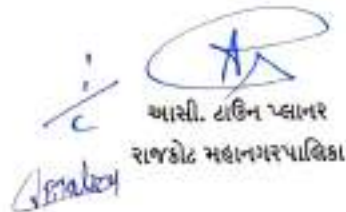 I/C
આસી. ટાઉન પ્લાનર
રાજકોટ મહાનગરપાલિકા